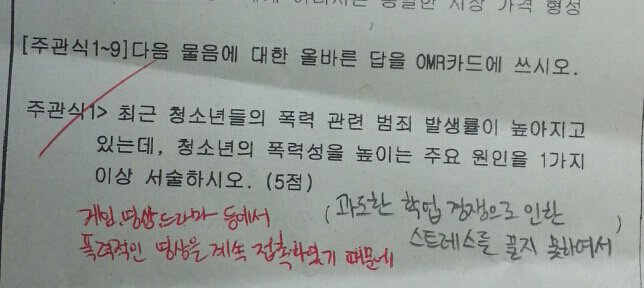 시장 가격 형성
[주관식1~9]다음 물음에 대한 올바른 답을 OMR카드에 쓰시오.
주관식1> 최근 청소년들의 폭력 관련 범죄 발생률이 높아지고
있는데, 청소년의 폭력성을 높이는 주요 원인을 1가지
이상 서술하시오. (5점)
게임,영상,드라마 등에서
폭력적인 영상을 계속 접촉하였기 때문에
(과도한 학업 경쟁으로 인한
스트레스를 풀지 못하여서)